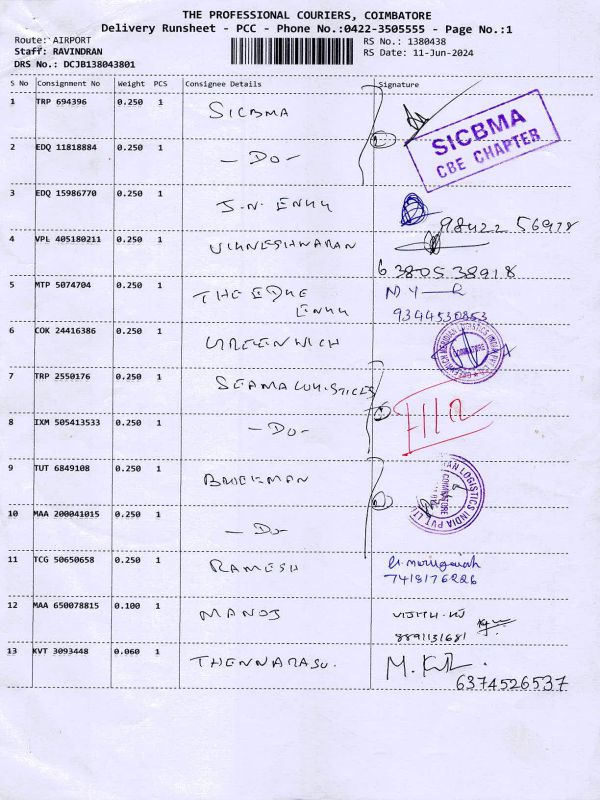 THE PROFESSIONAL COURIERS, COIMBATORE
Delivery Runsheet - PCC - Phone No.:0422-3505555 - Page No.:1
Route: AIRPORT RS No.: 1380438
Staff: RAVINDRAN RS Date: 11-Jun-2024
DRS No.: DCJB138043801
S No Consignment No Weight PCS Consignee Details Signature
1 TRP 694396 0.250 1 SICBMA
SICBMA
CBE CHAPTER
2 EDQ 11818884 0.250 1 -DO-
3 EDQ 15986770 0.250 1 J.N. ENGG
98422 56978
4 VPL 405180211 0.250 1 VIGNESHWARAN
6380538918
5 MTP 5074704 0.250 1 THE EDGE
ENGG
9344530853
6 COK 24416386 0.250 1 GREENWICH
7 TRP 2550176 0.250 1 SEAMA LOGISTICES
8 IXM 505413533 0.250 1 -DO-
9 TUT 6849108 0.250 1
LOGISTICS INDIA PVT LTD
COIMBATORE
10 MAA 200041015 0.250 1 -DO-
11 TCG 50650658 0.250 1 RAMESH
7418176226
12 MAA 650078815 0.100 1 MANOJ
8891131681
13 KVT 3093448 0.060 1 THENNARASU.
6374526537